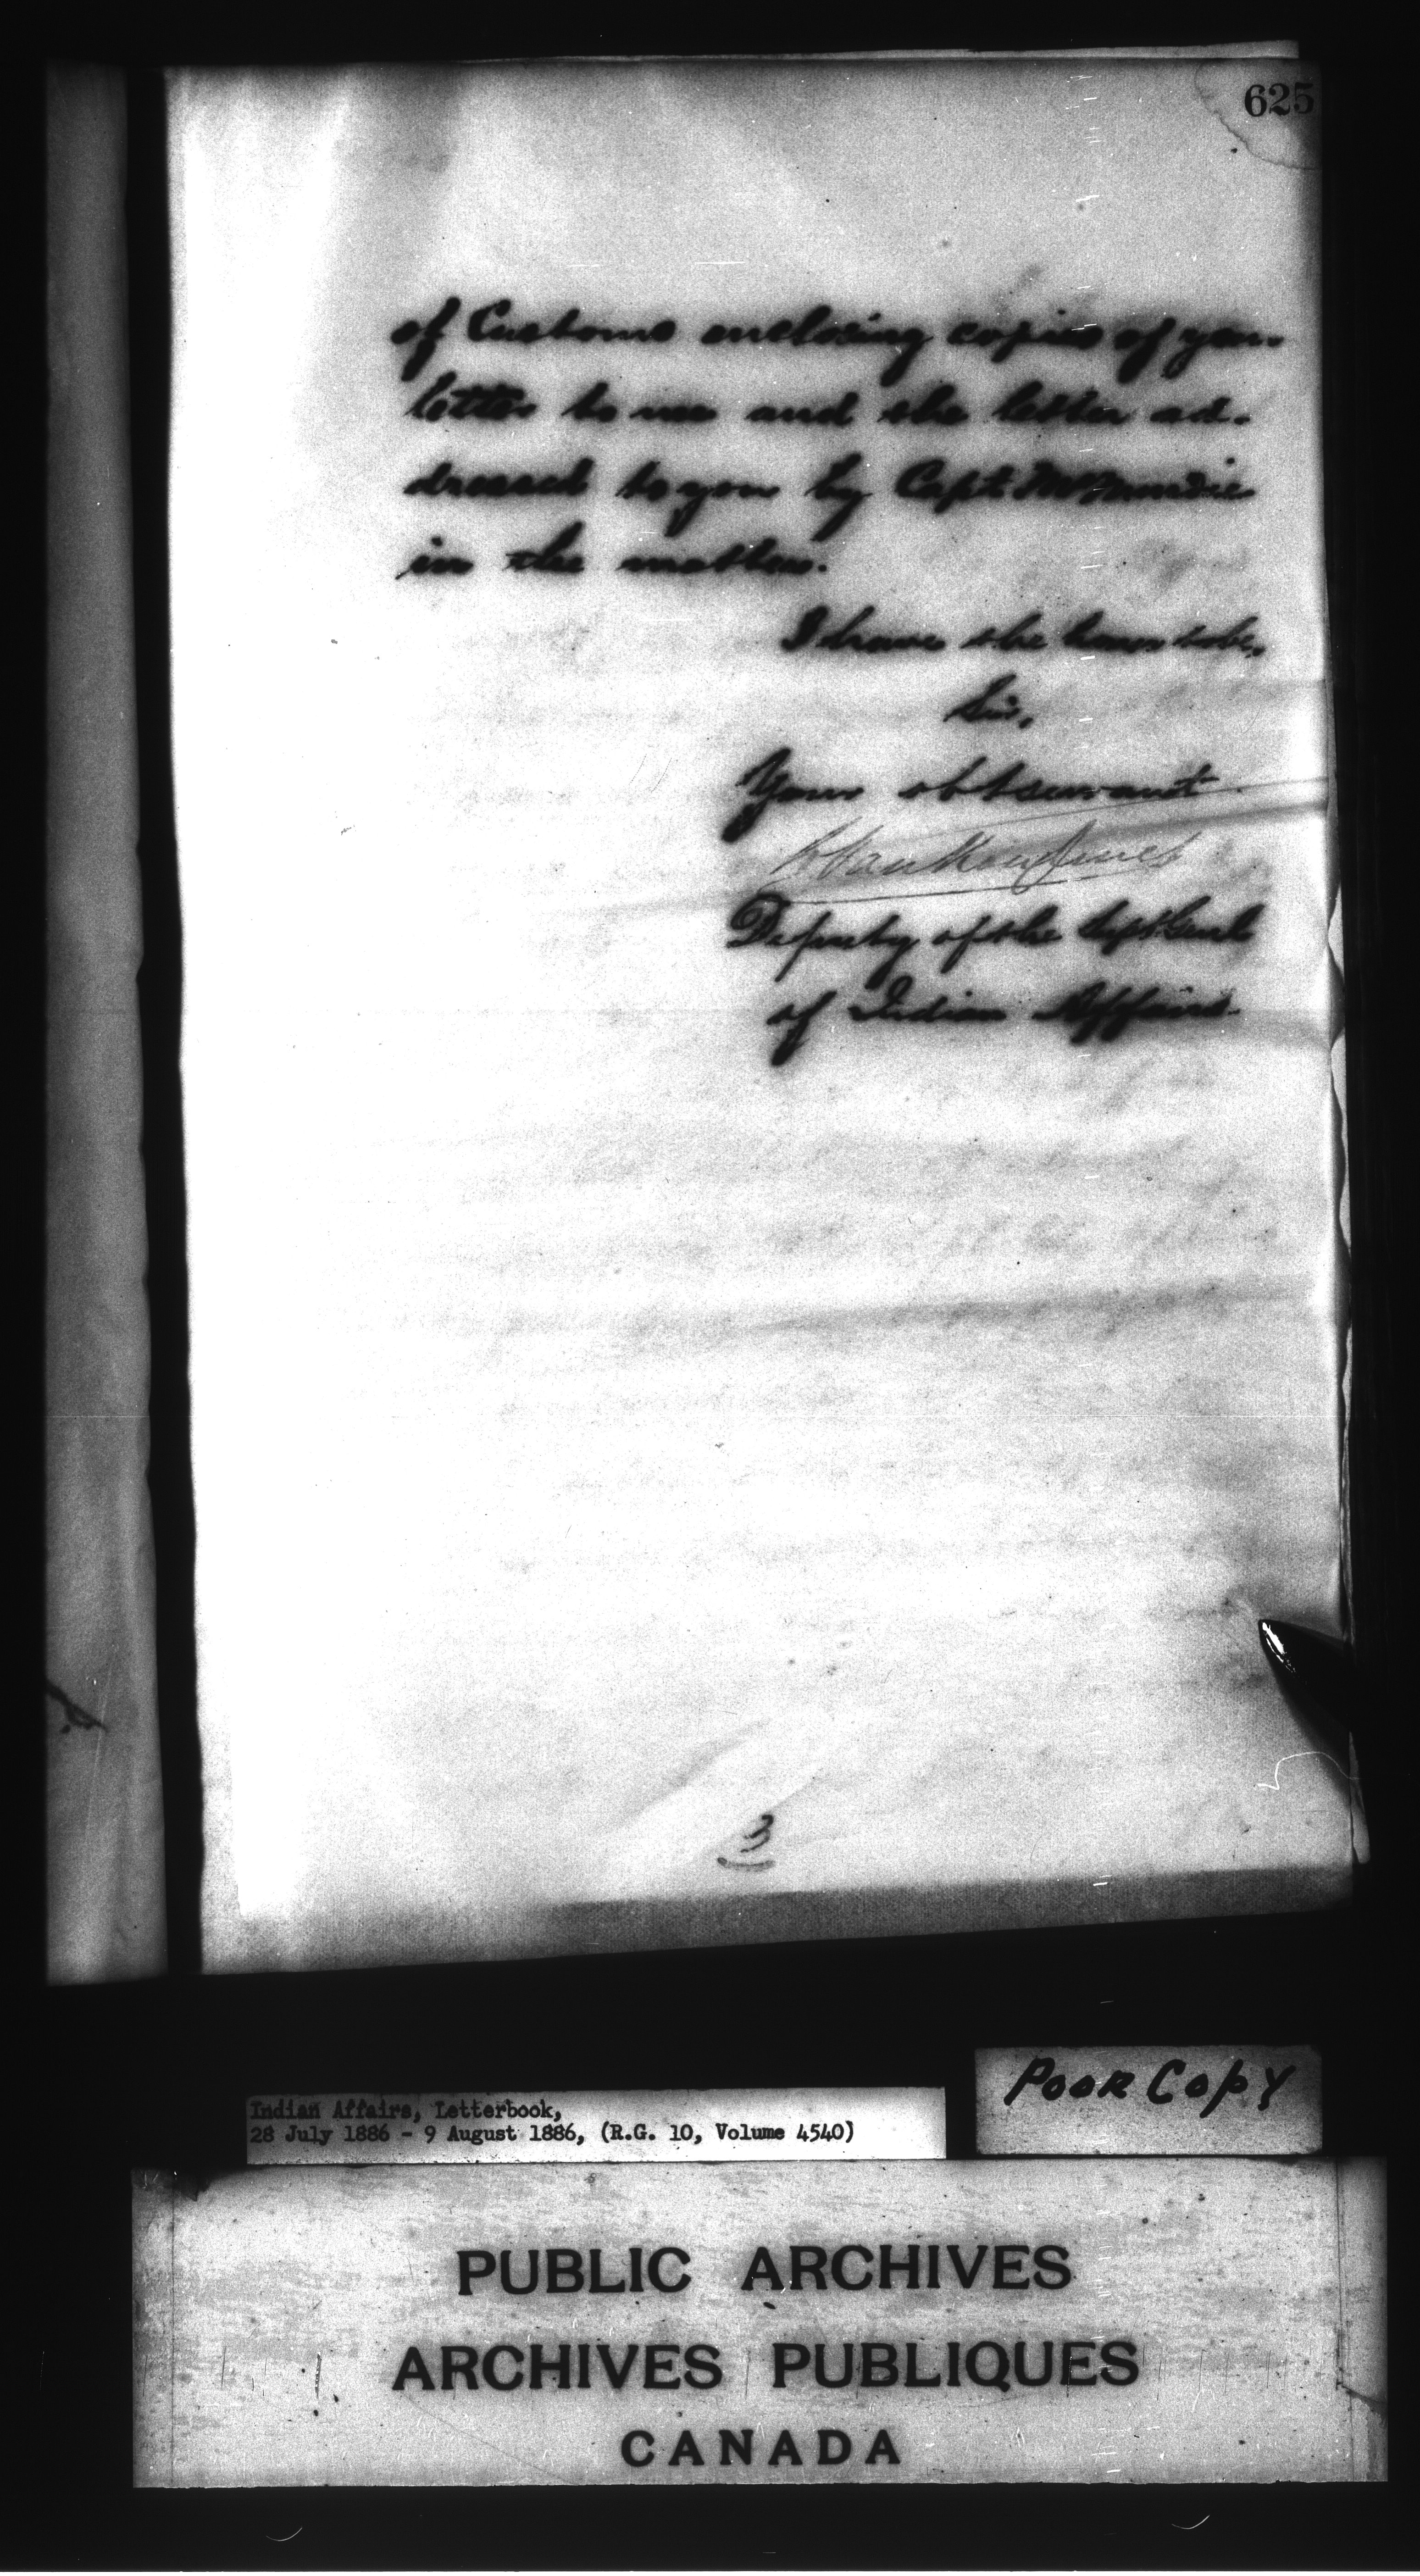 625
of Customs enclosing copies of your
letter to me and the letter ad-
dressed to you by Capt.
in the matter.
I have the honor to be,
Sir,
Your obt servant
Deputy of the Supt Genl
of Indian Affairs.
3
Poor Copy
Indian Affairs, Letterbook,
28 July 1886 - 9 August 1886, (R.G. 10, Volume 4540)
PUBLIC ARCHIVES
ARCHIVES PUBLIQUES
CANADA